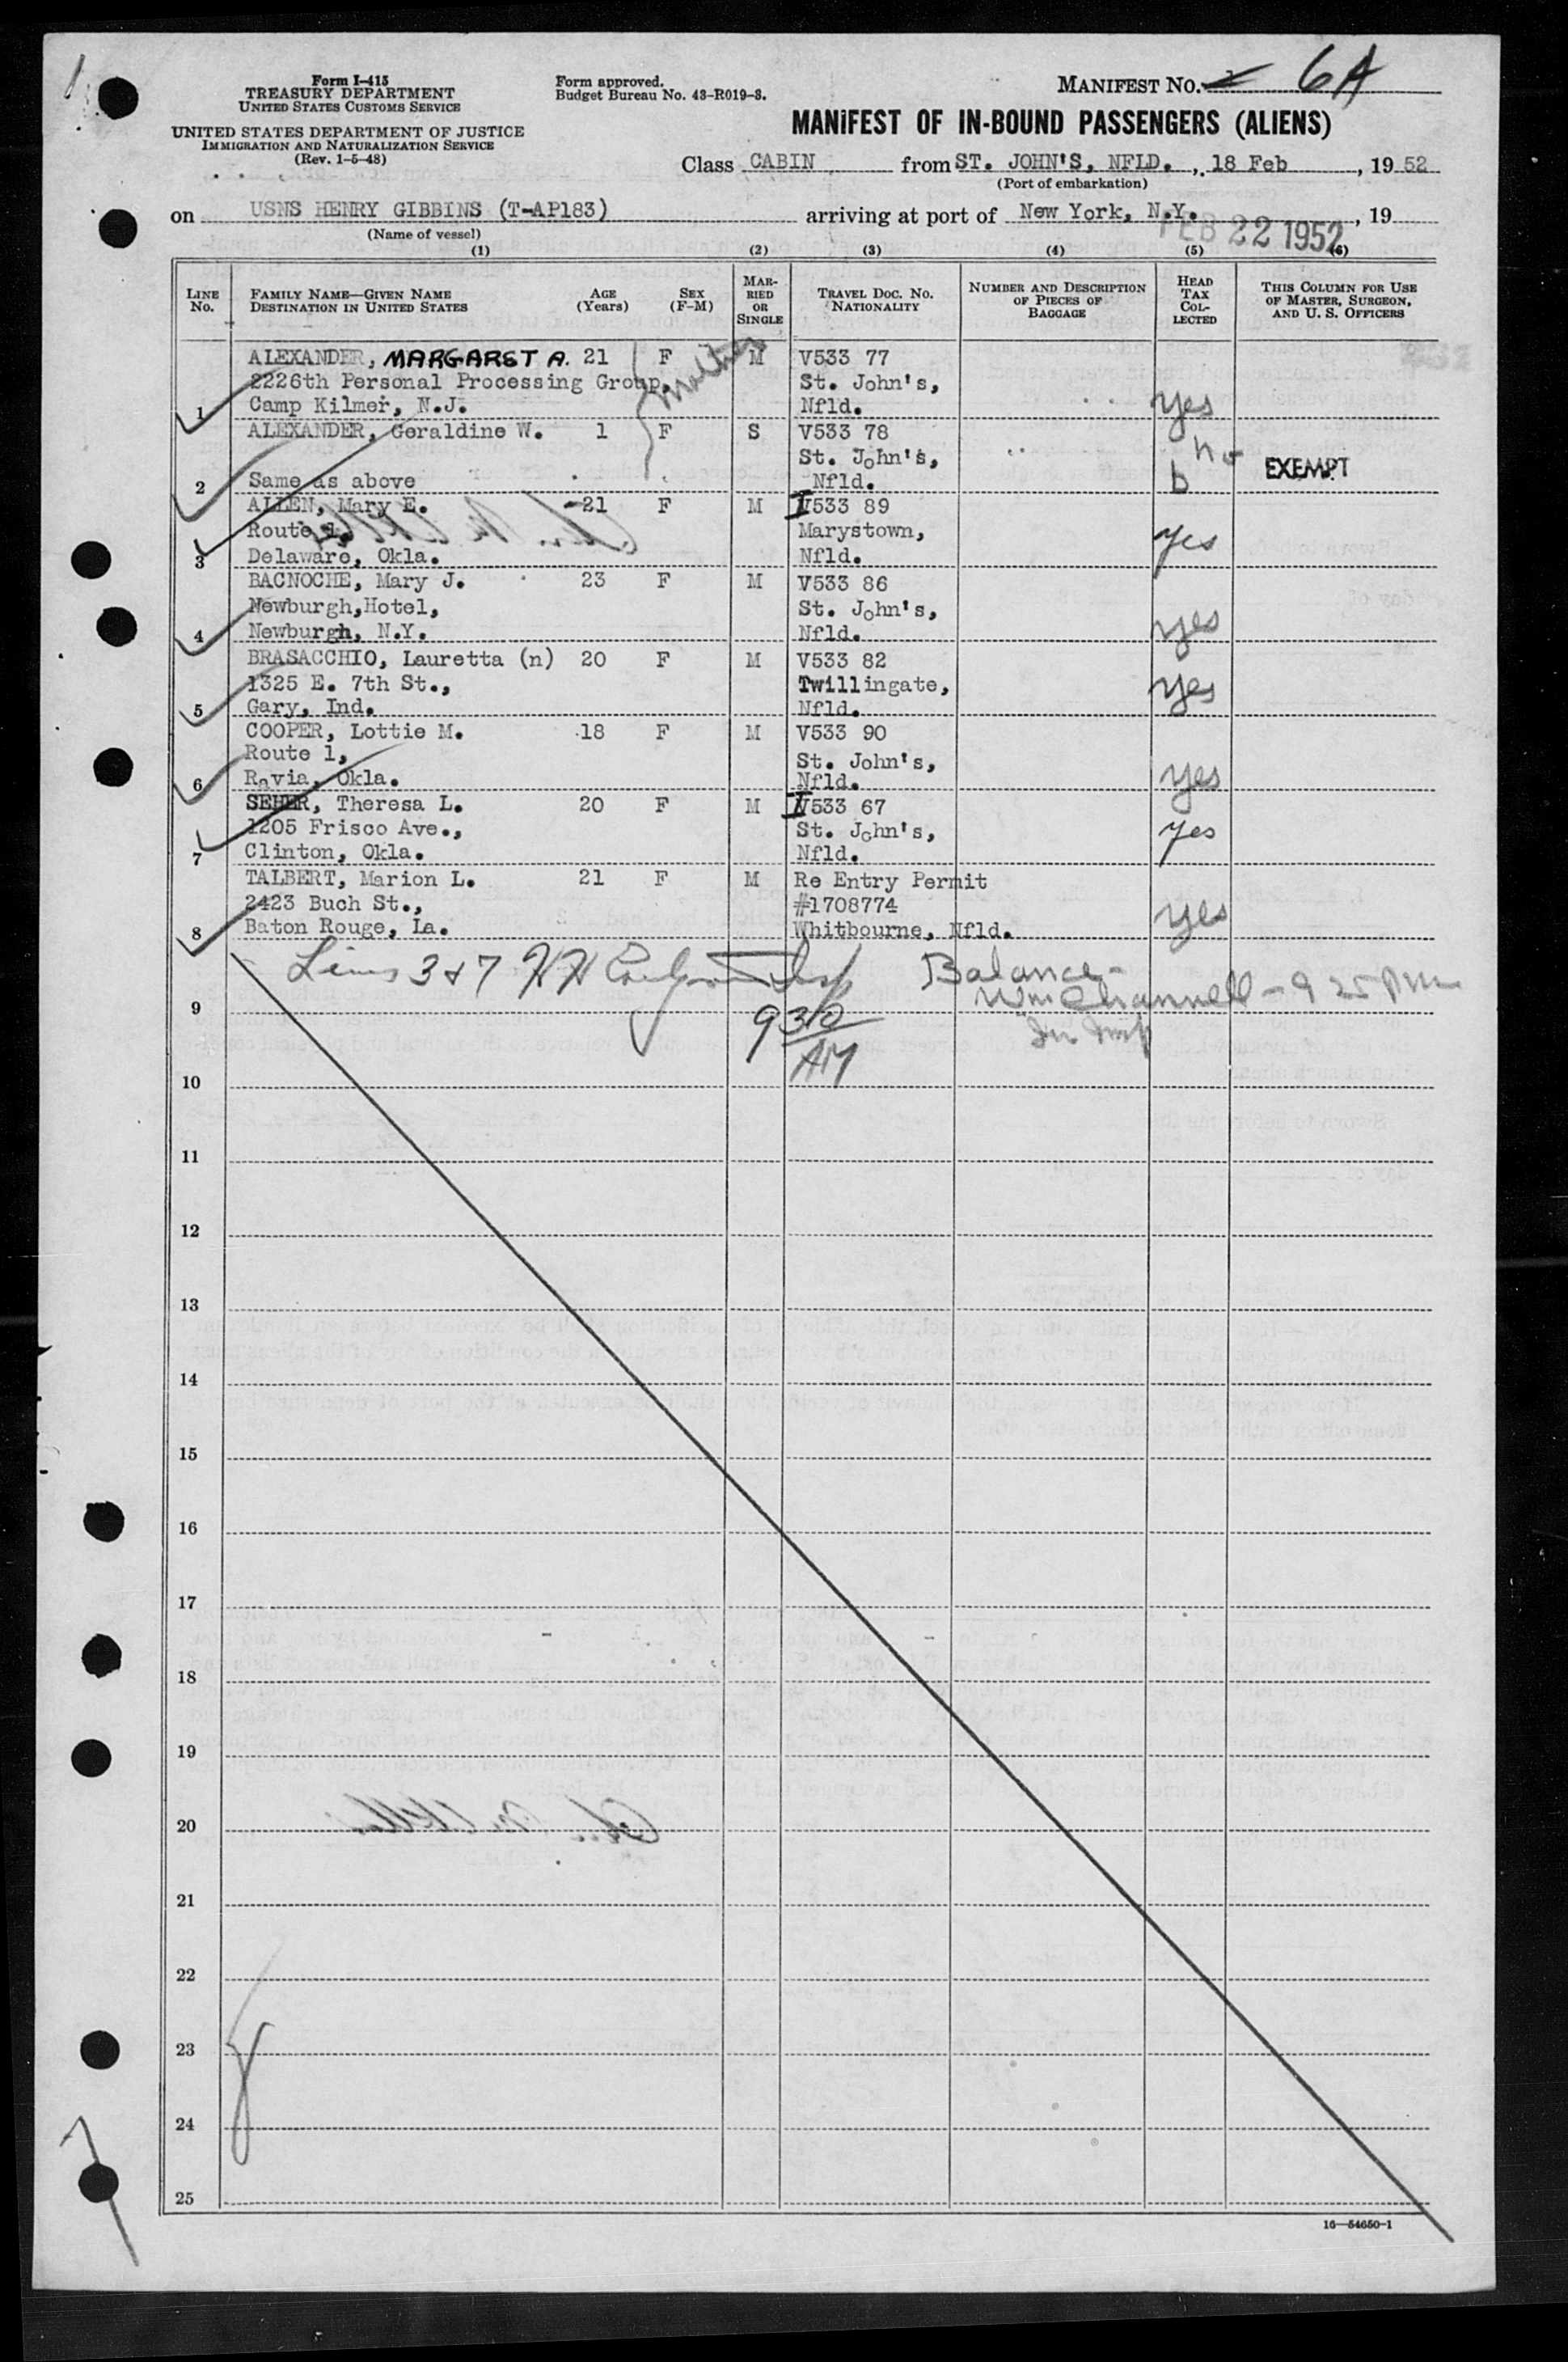 Form I-415
TREASURY DEPARTMENT
UNITED STATES CUSTOMS SERVICE
UNITED STATES DEPARTMENT OF JUSTICE
IMMIGRATION AND NATURALIZATION SERVICE
(Rev. 1-5-48)
Form approved.
Budget Bureau No. 43-R019-3.
MANIFEST NO. 6A
MANIFEST OF IN-BOUND PASSENGERS (ALIENS)
Class CABIN from ST. JOHN'S, NFLD., 18 Feb, 19 52
(Port of embarkation)
on USNS HENRY GIBBINS (T-AP183) arriving at port of New York, N.Y., 19
(Name of vessel)
FEB 22 1952
(1) (2) (3) (4) (5) (6)
LINE No.
FAMILY NAME—GIVEN NAME
DESTINATION IN UNITED STATES
AGE (Years)
SEX (F-M)
MAR-RIED OR SINGLE
TRAVEL DOC. NO. NATIONALITY
NUMBER AND DESCRIPTION OF PIECES OF BAGGAGE
HEAD TAX COL-LECTED
THIS COLUMN FOR USE OF MASTER, SURGEON, AND U. S. OFFICERS
ALEXANDER, MARGARET A. 21 F M V533 77
2226th Personal Processing Group, St. John's,
1 Camp Kilmer, N.J. Nfld. yes
ALEXANDER, Geraldine W. 1 F S V533 78
St. John's, no
2 Same as above Nfld. b EXEMPT
ALLEN, Mary E. 21 F M I533 89
Route 1, Marystown, yes
3 Delaware, Okla. Nfld.
BACNOCHE, Mary J. 23 F M V533 86
Newburgh,Hotel, St. John's,
4 Newburgh, N.Y. Nfld. yes
BRASACCHIO, Lauretta (n) 20 F M V533 82
1325 E. 7th St., Twillingate, yes
5 Gary, Ind. Nfld.
COOPER, Lottie M. 18 F M V533 90
Route 1, St. John's,
6 Ravia, Okla. Nfld. yes
SEHER, Theresa L. 20 F M I533 67
1205 Frisco Ave., St. John's, yes
7 Clinton, Okla. Nfld.
TALBERT, Marion L. 21 F M Re Entry Permit
2423 Buch St., #1708774
8 Baton Rouge, La. Whitbourne, Nfld. yes
Lines 3 & 7 Balance-
9 930 AM Wm Channell - 9 25 AM
10
11
12
13
14
15
16
17
18
19
20
21
22
23
24
25
16—54650-1